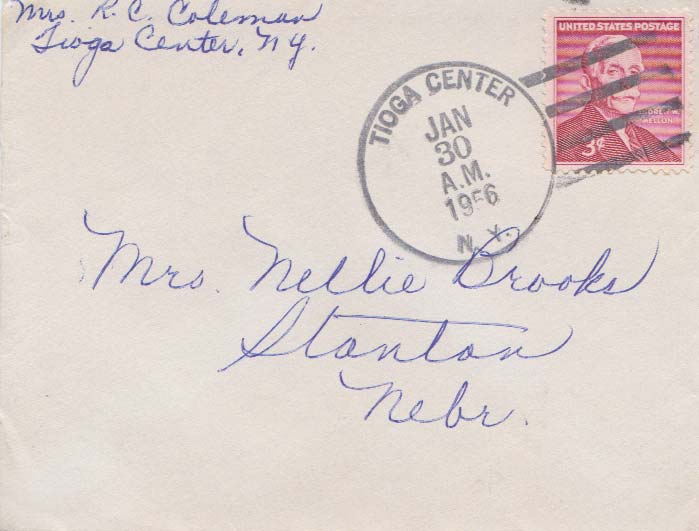 Mrs. R. C. Coleman
Tioga Center, N.Y.
UNITED STATES POSTAGE
ANDREW W.
MELLON
3¢
TIOGA CENTER
JAN
30
A.M.
1956
N.Y.
Mrs. Nellie Brooks
Stanton
Nebr.